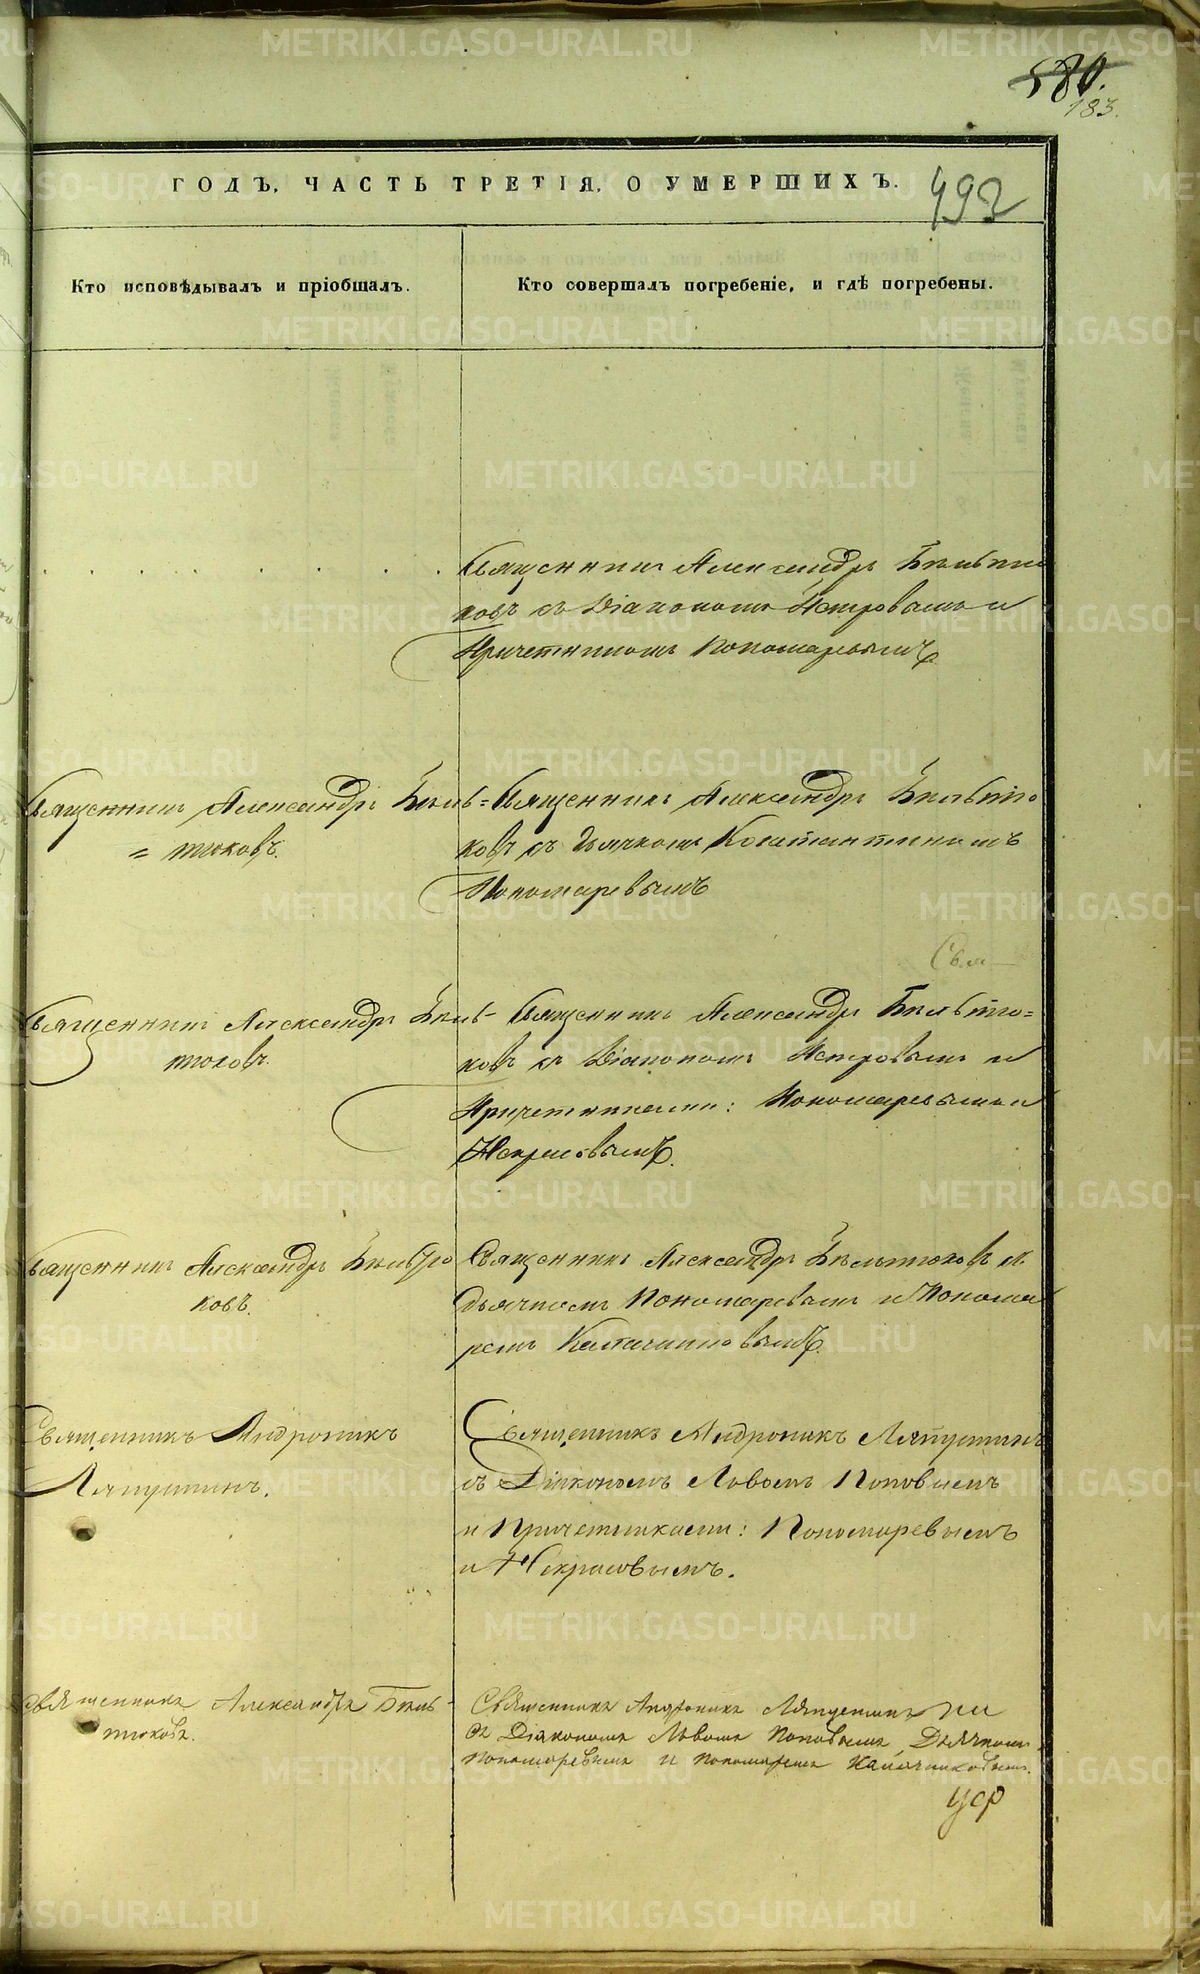 580.
183.
ГОДЪ, ЧАСТЬ ТРЕТІЯ, О УМЕРШИХЪ.
492
Кто исповѣдывалъ и пріобщалъ.
Кто совершалъ погребеніе, и гдѣ погребены.
. . . . . . . .
Священникъ Александръ Бѣльтю
ковъ съ Діакономъ Петровымъ и
Причетникомъ Пономаревымъ
Священникъ Александръ Бѣль=
= тюковъ.
Священникъ Александръ Бѣльтю
ковъ съ дьячкомъ Константиномъ
Пономаревымъ
Священникъ Александръ Бѣль-
тюковъ.
Священникъ Александръ Бѣльтю=
ковъ съ Діакономъ Петровымъ и
Причетниками: Пономаревымъ и
Некрасовымъ.
Священникъ Александръ Бѣльтю
ковъ.
Священникъ Александръ Бѣльтюковъ съ
дьячкомъ Пономаревымъ и Понома
ремъ Калачниковымъ.
Священникъ Андроникъ
Ляпустинъ.
Священникъ Андроникъ Ляпустинъ
съ Діакономъ Львомъ Поповымъ
и Причетниками: Пономаревымъ
и Некрасовымъ.
Священникъ Александръ Бѣль-
тюковъ.
Священникъ Андроникъ Ляпустинъ
съ Діакономъ Львомъ Поповымъ Дьячкомъ
Пономаревымъ и пономаремъ Калачниковымъ.
METRIKI.GASO-URAL.RU